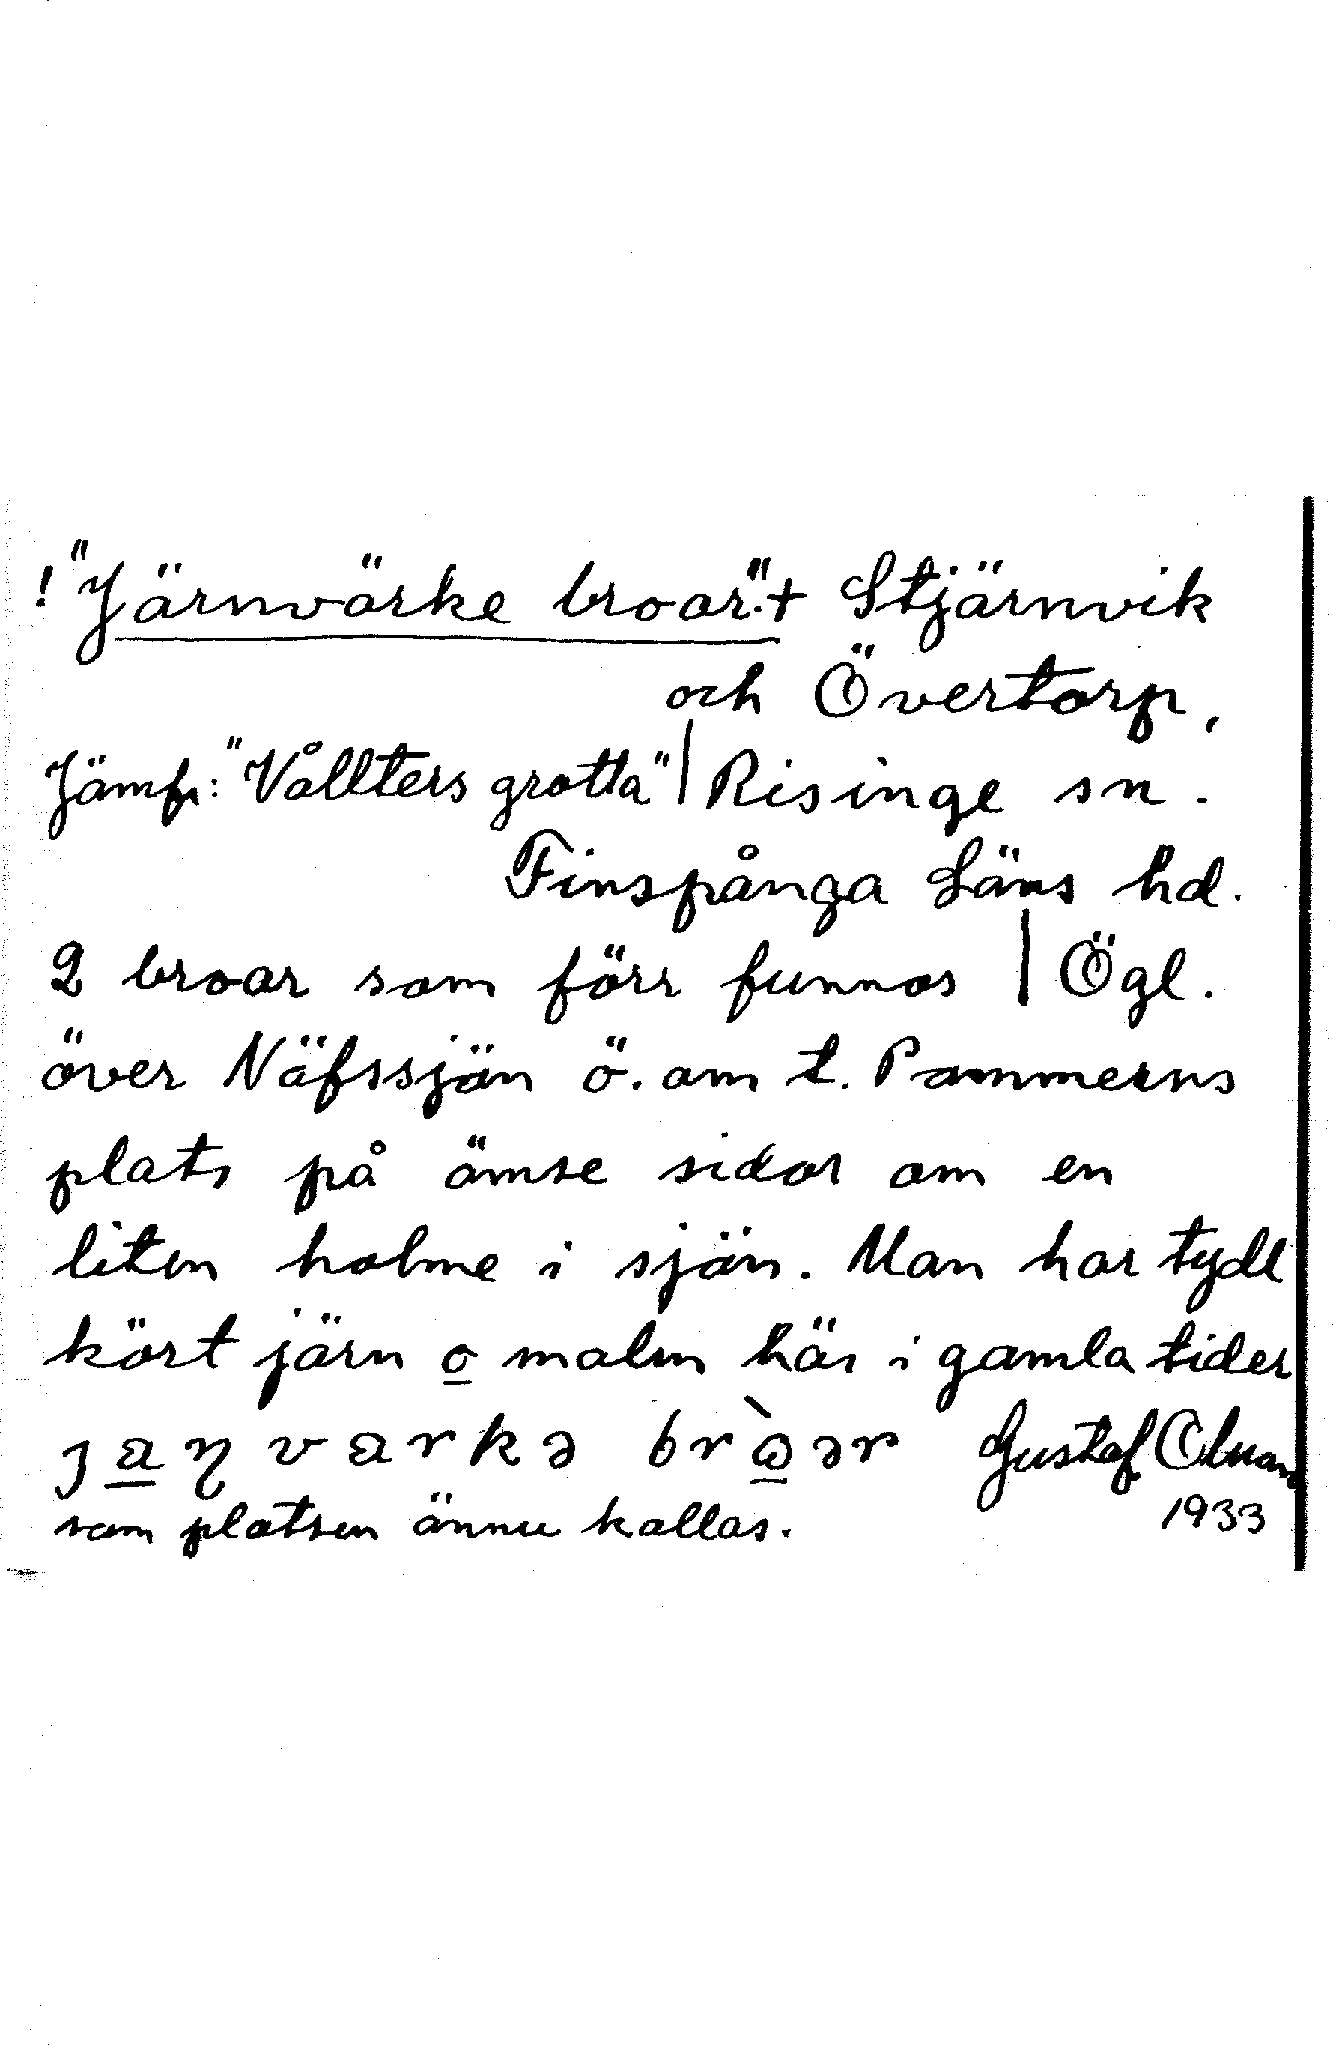 ! "Järnvärke broar".† Stjärnvik
och Övertorp,
Jämfr: "Vållters grotta" | Risinge sn.
Finspånga Läns hd.
2 broar som förr funnos | Ögl.
över Näfssjön ö. om t. Pommerns
plats på ömse sidor om en
liten holme i sjön. Man har tydl
kört järn o malm här i gamla tider
ȷaɳvarkə bròər Gustaf
som platsen ännu kallas. 1933